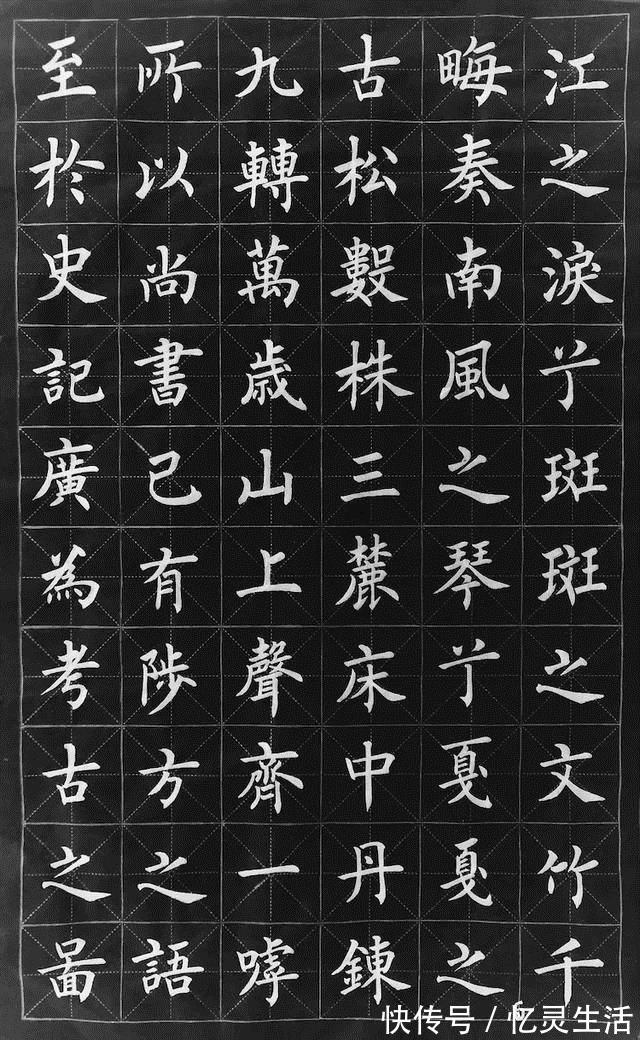 江之淚兮斑斑之文竹千
畮奏南風之琴兮戛戛之
古松數株三麓床中丹鍊
九轉萬歳山上聲齊一嘑
所以尚書已有陟方之語
至於史記廣為考古之啚
快传号 / 忆灵生活